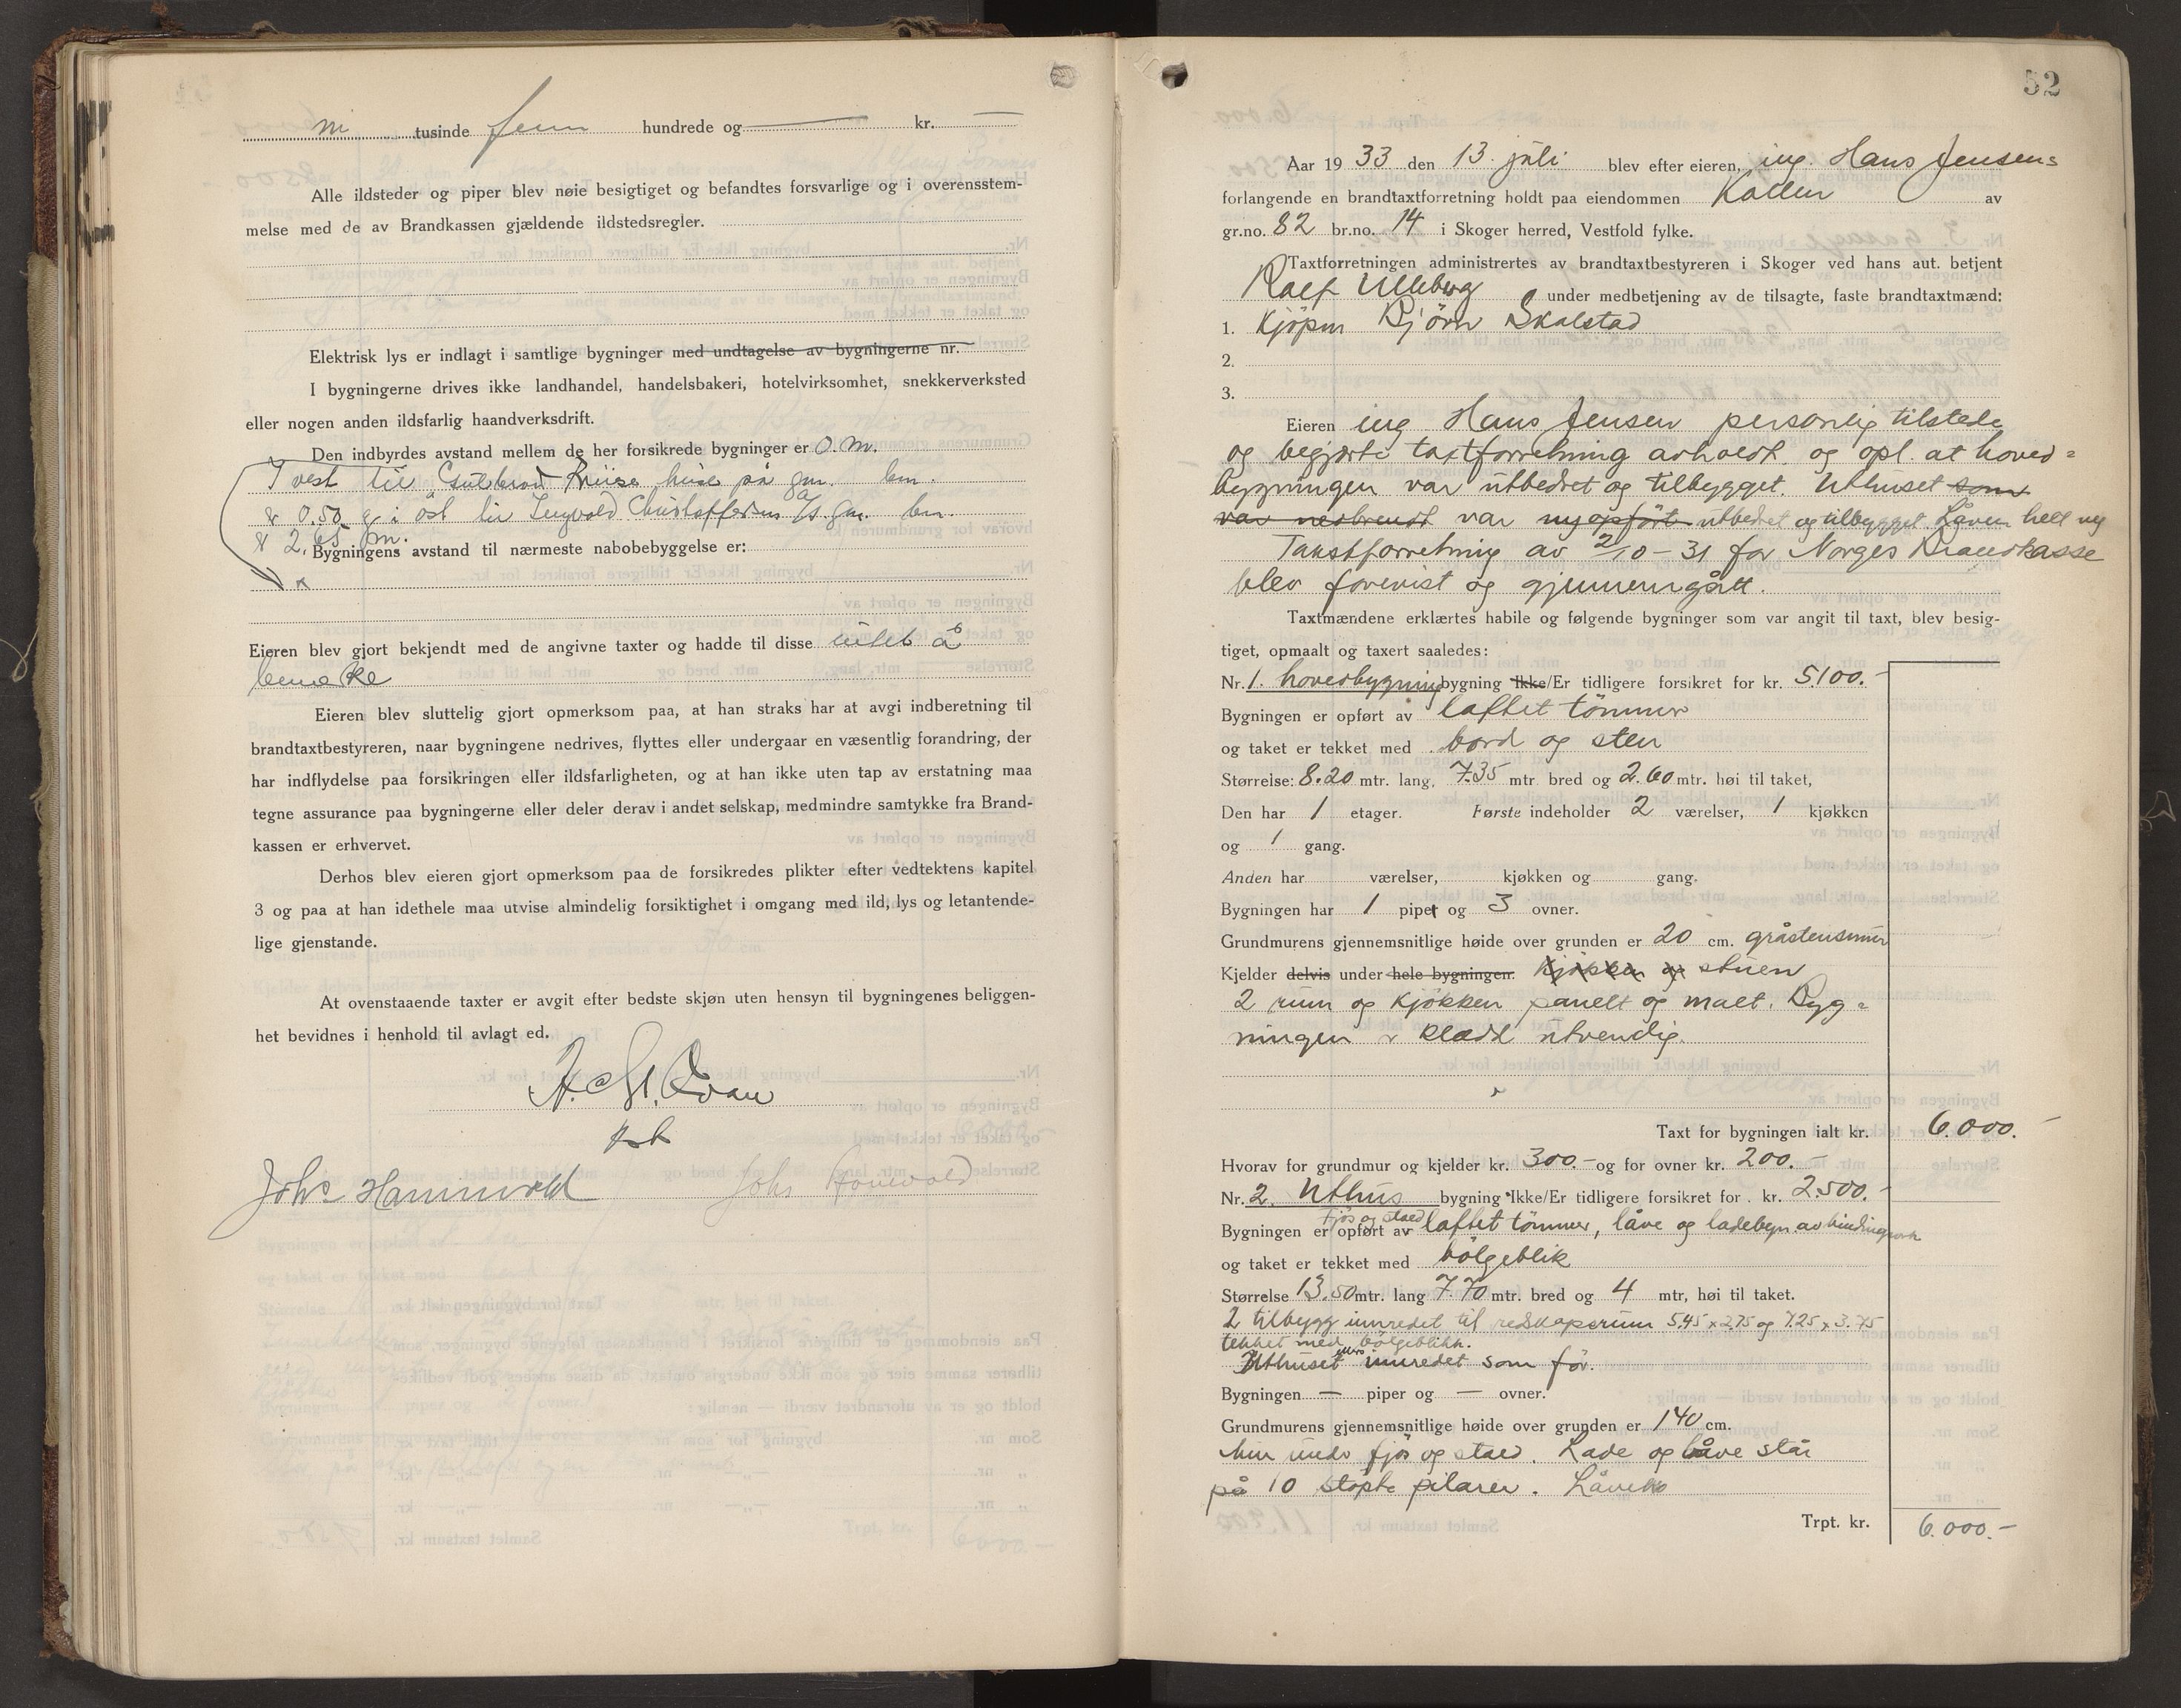 ni tusinde fem hundrede og — kr. —
Alle ildsteder og piper blev nøie besigtiget og befandtes forsvarlige og i overensstem-
melse med de av Brandkassen gjældende ildstedsregler.
Elektrisk lys er indlagt i samtlige bygninger med undtagelse av bygningerne nr.
I bygningerne drives ikke landhandel, handelsbakeri, hotelvirksomhet, snekkerverksted
eller nogen anden ildsfarlig haandverksdrift.
Den indbyrdes avstand mellem de her forsikrede bygninger er 0. m.
I vest til Gulbrand hus på gm. bm.
er 0.50 g i øst til Ingvald Christoffersen gm. bm.
er 2.65 m.
Bygningens avstand til nærmeste nabobebyggelse er:
x
Eieren blev gjort bekjendt med de angivne taxter og hadde til disse intet å
bemerke
Eieren blev sluttelig gjort opmerksom paa, at han straks har at avgi indberetning til
brandtaxtbestyreren, naar bygningene nedrives, flyttes eller undergaar en væsentlig forandring, der
har indflydelse paa forsikringen eller ildsfarligheten, og at han ikke uten tap av erstatning maa
tegne assurance paa bygningerne eller deler derav i andet selskap, medmindre samtykke fra Brand-
kassen er erhvervet.
Derhos blev eieren gjort opmerksom paa de forsikredes plikter efter vedtektens kapitel
3 og paa at han idethele maa utvise almindelig forsiktighet i omgang med ild, lys og letantende-
lige gjenstande.
At ovenstaaende taxter er avgit efter bedste skjøn uten hensyn til bygningenes beliggen-
het bevidnes i henhold til avlagt ed.
Johs Hannevold Johs Hannevold
52
Aar 1933 den 13. juli blev efter eieren, ing. Hans Jensens
forlangende en brandtaxtforretning holdt paa eiendommen Kallen av
gr.no. 82 br.no. 14 i Skoger herred, Vestfold fylke.
Taxtforretningen administrertes av brandtaxtbestyreren i Skoger ved hans aut. betjent
Ralf Ulleberg under medbetjening av de tilsagte, faste brandtaxtmænd:
1. Kjøpm Bjørn Skalstad
2.
3.
Eieren ing Hans Jensen personlig tilstede
og begjærte taxtforretning avholdt og opl. at hoved-
bygningen var utbedret og tilbygget. Uthuset som
var nedbrendt var nyopført utbedret og tilbygget. Låven helt ny
Takstforretning av 2/10-31 for Norges Brandkasse
blev forevist og gjennemgått.
Taxtmændene erklærtes habile og følgende bygninger som var angit til taxt, blev besig-
tiget, opmaalt og taxert saaledes:
Nr. 1. hovedbygning bygning Ikke/Er tidligere forsikret for kr. 5100.-
Bygningen er opført av laftet tømmer
og taket er tekket med bord og sten
Størrelse: 8.20 mtr. lang, 7.35 mtr. bred og 2.60 mtr. høi til taket,
Den har 1 etager. Første indeholder 2 værelser, 1 kjøkken
og 1 gang.
Anden har værelser, kjøkken og gang.
Bygningen har 1 piper og 3 ovner.
Grundmurens gjennemsnitlige høide over grunden er 20 cm. gråstensmur
Kjelder delvis under hele bygningen. kjøkken og stuen
2 rum og kjøkken panelt og malt. Byg-
ningen er klædd utvendig.
Taxt for bygningen ialt kr. 6.000.-
Hvorav for grundmur og kjelder kr. 300.- og for ovner kr. 200.-
Nr. 2. Uthus bygning Ikke/Er tidligere forsikret for kr. 2.500.-
Fjøs og stald
Bygningen er opført av laftet tømmer, låve og ladebygn av bindingverk
og taket er tekket med bølgeblik
Størrelse 13.50 mtr. lang 7.70 mtr. bred og 4 mtr, høi til taket.
2 tilbygg innredet til redskapsrum 5.45 x 2.75 og 7.25 x 3.75
tekket med bølgeblikk.
Uthuset ellers innredet som før.
Bygningen — piper og — ovner.
Grundmurens gjennemsnitlige høide over grunden er 140 cm.
mur under fjøs og stald. Lade og låve står
på 10 støpte pilarer. Låven
Trpt. kr. 6.000.-